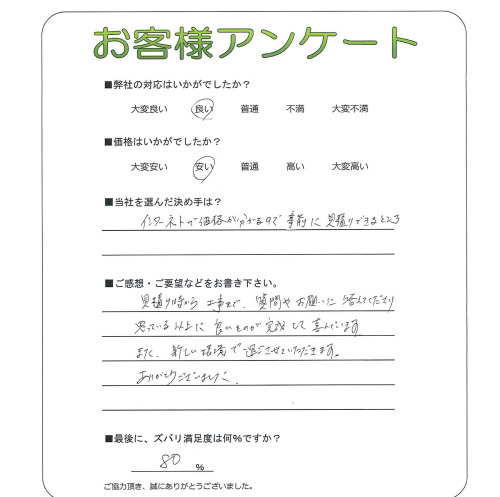 お客様アンケート
■弊社の対応はいかがでしたか？
大変良い 良い 普通 不満 大変不満
■価格はいかがでしたか？
大変安い 安い 普通 高い 大変高い
■当社を選んだ決め手は？
インターネットで価格が分かるので事前に見積りできるところ
■ご感想・ご要望などをお書き下さい。
見積り時から工事まで、質問やお願いに答えてくださり
思っている以上に良いものが完成して喜んでいます。
また、新しい環境で過ごさせていただきます。
ありがとうございました。
■最後に、ズバリ満足度は何%ですか？
80 %
ご協力頂き、誠にありがとうございました。